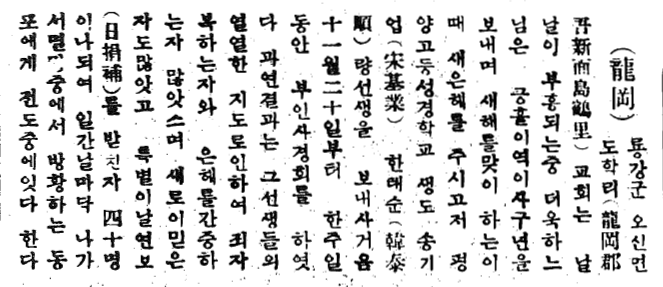 (龍岡) 룡강군 오신면
도학리(龍岡郡
吾新面島鶴里) 교회는 날
날이 부흥되는중 더욱하느
님은 긍휼이역이사구년을
보내며 새해를맞이 하는이
때 새은혜를 주시고저 평
양고등성경학교 생도 송기
업(宋基業) 한태순(韓泰
順) 량선생을 보내사거음
十一월二十일부터 한주일
동안 부인사경회를 하엿
다 과연결과는 그선생들의
열열한 지도로인하여 죄자
복하는자와 은혜를간중하
는자 많앗스며 새로이믿은
자도많앗고 특별이날연보
(日捐補)를 받친자 四十명
이나되여 일간날마닥 나가
방황하는 동
포에게 전도중에잇다 한다